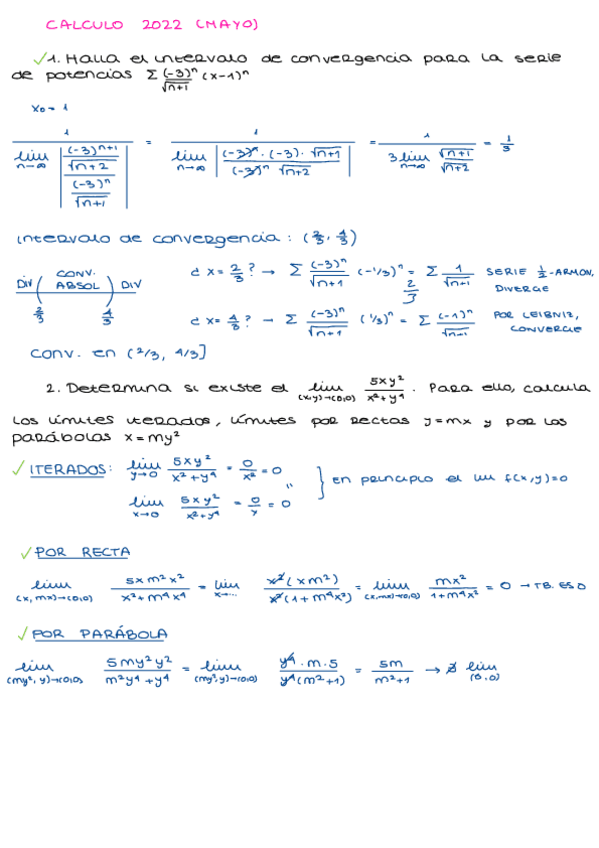 CALCULO 2022 (MAYO)
✓1. Halla el intervalo de convergencia para la serie
de potencias Σ (-3)ⁿ/√n+1 (x-1)ⁿ
x₀ → 1
1 / lim n→∞ |((-3)ⁿ⁺¹/√n+2)/((-3)ⁿ/√n+1)| = 1 / lim n→∞ |(-3)ⁿ·(-3)·√n+1 / (-3)ⁿ √n+2| = 1 / 3 lim n→∞ √n+1/√n+2 = 1/3
Intervalo de convergencia: (2/3, 4/3)
DIV ( CONV. ABSOL ) DIV
2/3 4/3
¿ x = 2/3 ? → Σ (-3)ⁿ/√n+1 (-1/3)ⁿ = Σ 1/√n+1 SERIE 1/2-ARMON,
2/3 DIVERGE
¿ x = 4/3 ? → Σ (-3)ⁿ/√n+1 (1/3)ⁿ = Σ (-1)ⁿ/√n+1 POR LEIBNIZ,
CONVERGE
CONV. en (2/3, 4/3]
2. Determina si existe el lim (x,y)→(0,0) 5xy²/x²+y⁴ . Para ello, calcula
los límites iterados, límites por rectas y=mx y por las
parábolas x=my²
✓ ITERADOS: lim y→0 5xy²/x²+y⁴ = 0/x² = 0
lim x→0 5xy²/x²+y⁴ = 0/y = 0
} en principio el lim f(x,y)=0
✓ POR RECTA
lim (x,mx)→(0,0) 5xm²x²/x²+m⁴x⁴ = lim x→... x²(xm²)/x²(1+m⁴x²) = lim (x,mx)→(0,0) mx²/1+m⁴x² = 0 → TB. ES 0
✓ POR PARÁBOLA
lim (my²,y)→(0,0) 5my²y²/m²y⁴+y⁴ = lim (my²,y)→(0,0) y⁴·m·5/y⁴(m²+1) = 5m/m²+1 → ∄ lim (0,0)